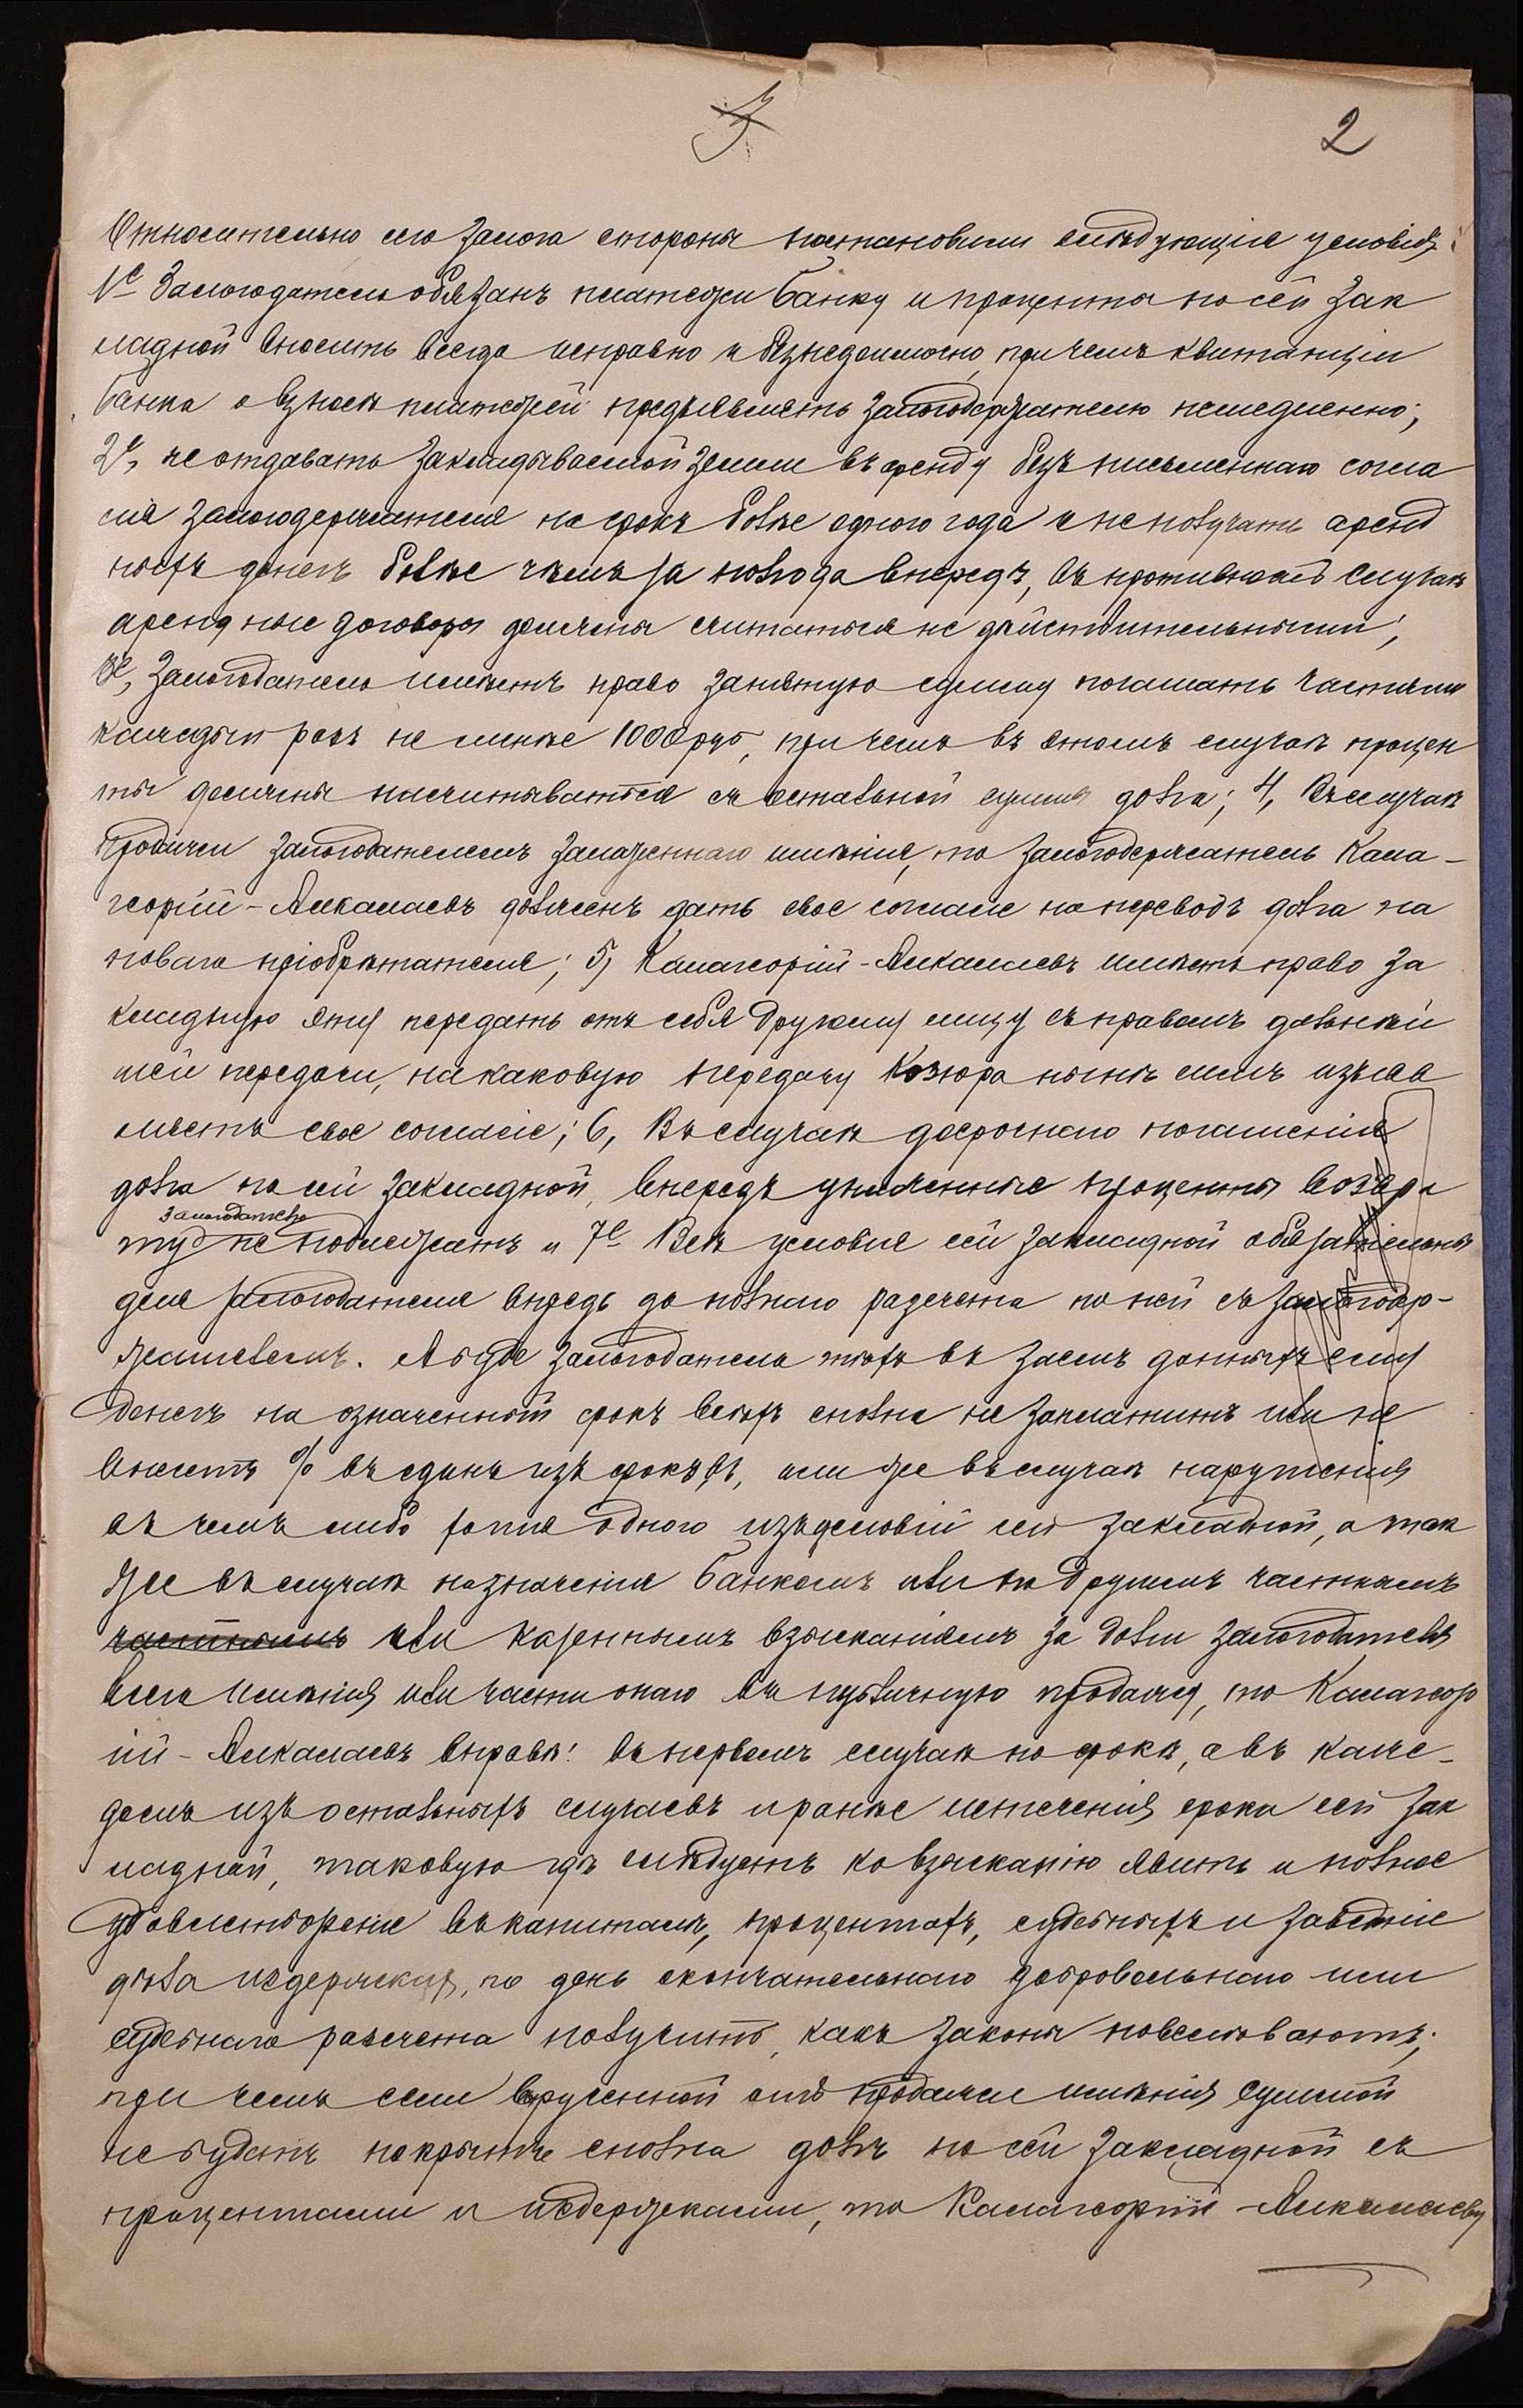 2
Относительно сего залога стороны постановили слѣдующія условія:
1е Залогодатель обязанъ платежи банку и проценты по сей зак
ладной вносить всегда исправно и безнедоимочно, при чемъ квитанціи
банка о взносѣ платежей предъявлять залогодержателю немедленно;
2е, не отдавать закладываемой земли въ аренду безъ письменнаго согла
сія залогодержателя на срокъ болѣе одного года и не получать аренд
ныхъ денегъ болѣе чѣмъ за полгода впередъ, въ противномъ случаѣ
арендные договоры должны считаться не дѣйствительными;
3е, Залогодатель имѣетъ право занятую сумму погашать частями
каждый разъ не менѣе 1000 руб, при чемъ въ этомъ случаѣ процен
ты должны насчитываться съ остальной суммы долга; 4, Въ случаѣ
продажи залогодателемъ заложеннаго имѣнія, то залогодержатель Кала-
георгій-Алкалаевъ долженъ дать свое согласіе на переводъ долга на
новаго пріобрѣтателя; 5, Калагеоргій-Алкалаевъ имѣетъ право за
кладную эту передать отъ себя другому лицу съ правомъ дальнѣй
шей передачи, на каковую передачу Козюра нынѣ симъ изъяв
ляетъ свое согласіе; 6, Въ случаѣ досрочнаго погашенія
долга по сей закладной, впередъ уплаченные проценты возвра
залогодателю
ту не подлежатъ и 7е Всѣ условія сей закладной обязательны
для залогодателя впредь до полнаго разсчета по ней съ залогодер-
жателемъ. А буде залогодатель тѣхъ въ заемъ данныхъ ему
денегъ на означенный срокъ всѣхъ сполна не заплатитъ или не
внесетъ % въ одинъ изъ сроковъ, или же въ случаѣ нарушенія
въ чемъ либо хотя одного изъ условій сей закладной, а так
же въ случаѣ назначенія банкомъ или по другимъ частнымъ
частнымъ или казеннымъ взысканіямъ за долги залогодателя
всего имѣнія или части онаго въ публичную продажу, то Калагеор
гій-Алкалаевъ вправѣ: въ первомъ случаѣ по срокѣ, а въ каж-
домъ изъ остальныхъ случаевъ и ранѣе истеченія срока сей зак
ладной, таковую гдѣ слѣдуетъ ко взысканію явить и полное
удовлетвореніе въ капиталѣ, процентахъ, судебныхъ и за веденіе
дѣла издержкахъ, по день окончательнаго добровольнаго или
судебнаго разсчета получить, какъ законы повелѣваютъ;
при чемъ если вырученной отъ продажи имѣнія суммой
не будетъ покрытъ сполна долгъ по сей закладной съ
процентами и издержками, то Калагеоргій-Алкалаеву